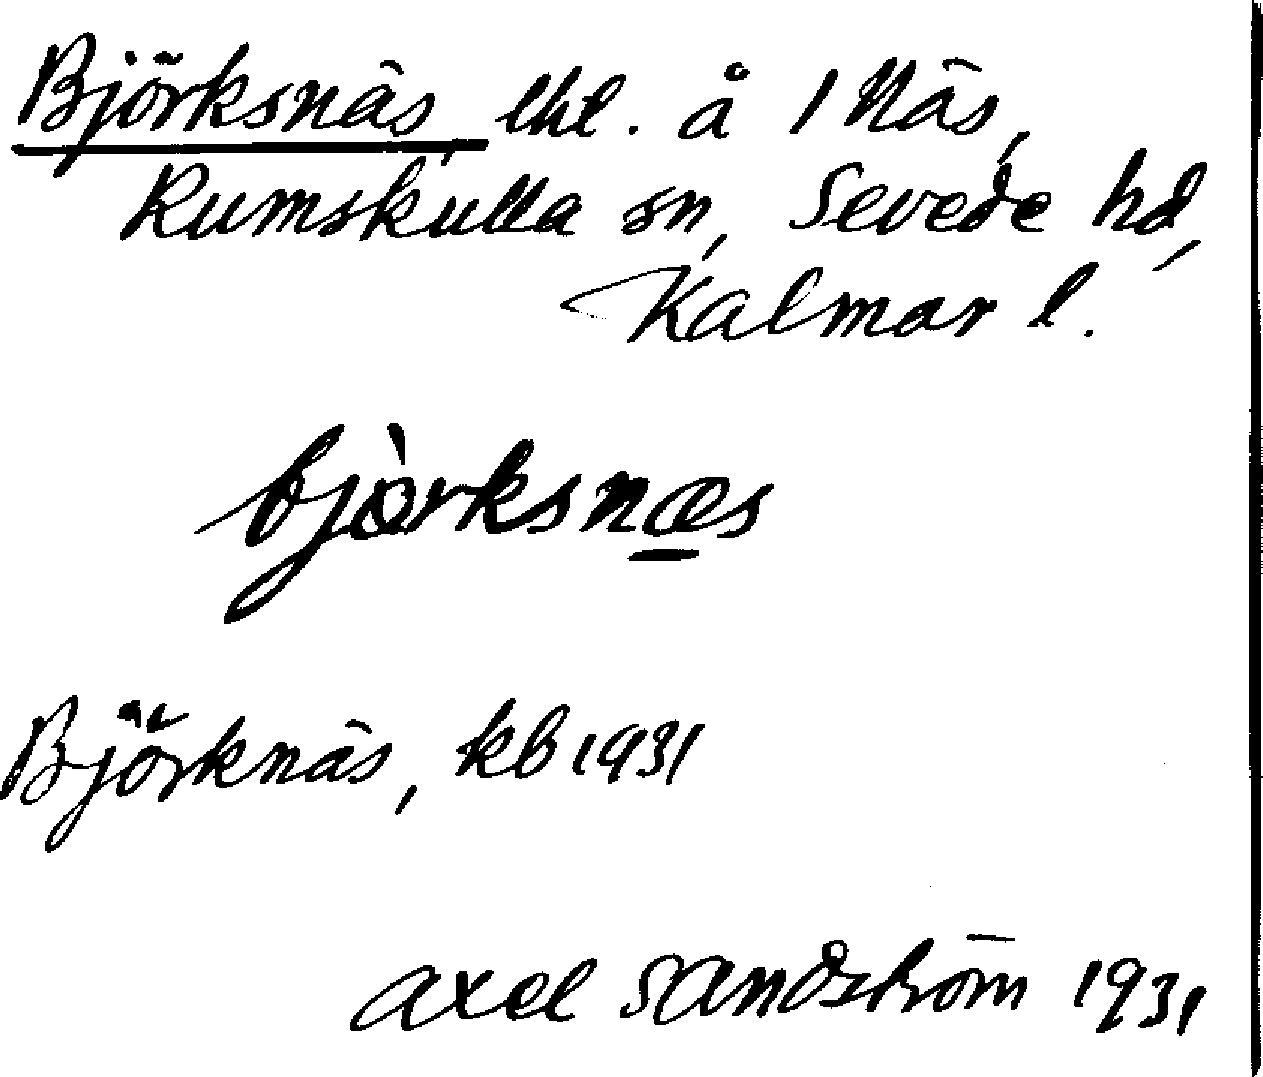 Björksnäs, lht. å 1 Näs,
Rumskulla sn, Sevede hd,
Kalmar l.
bjòrksnæs
Björknäs, kb 1931
Axel Sandström 1931